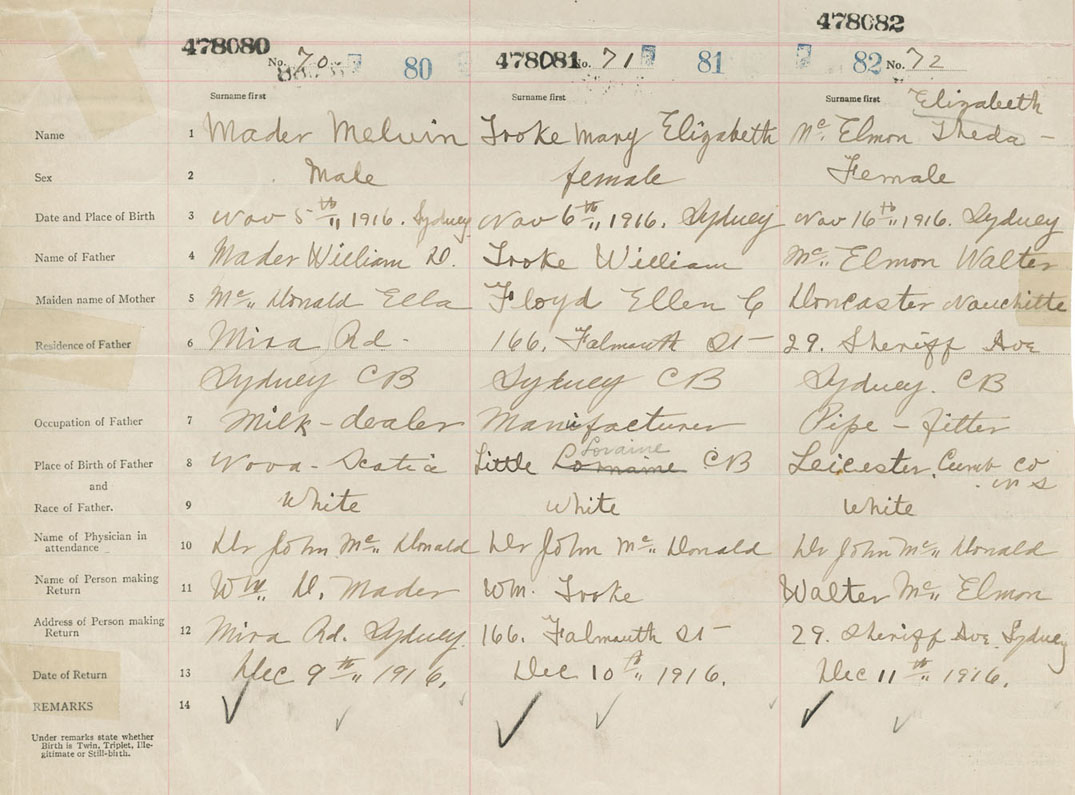 478082
478080 No. 70 80 478081 No. 71 81 82 No. 72
Surname first Surname first Surname first Elizabeth
Name 1 Mader Melvin Tooke Mary Elizabeth Mc Elmon Theda -
Sex 2 Male female Female
Date and Place of Birth 3 Nov 5th, 1916. Sydney Nov 6th, 1916. Sydney Nov 16th, 1916. Sydney
Name of Father 4 Mader William D. Tooke William Mc Elmon Walter
Maiden name of Mother 5 Mc Donald Ella Floyd Ellen C Doncaster
Residence of Father 6 Mira Rd. 166. Falmouth St 29. Sheriff Ave
Sydney CB Sydney CB Sydney. CB
Occupation of Father 7 Milk-dealer Manufacturer Pipe-fitter
Loraine
Place of Birth of Father 8 Nova-Scotia Little Lorraine CB Leicester, Cumb Co
and N S
Race of Father. 9 White White White
Name of Physician in
attendance 10 Dr John Mc Donald Dr John Mc Donald Dr John Mc Donald
Name of Person making
Return 11 Wm. D. Mader Wm. Tooke Walter Mc Elmon
Address of Person making
Return 12 Mira Rd. Sydney. 166. Falmouth St 29. Sheriff Ave. Sydney
Date of Return 13 Dec 9th, 1916. Dec 10th, 1916. Dec 11th, 1916.
REMARKS 14
Under remarks state whether
Birth is Twin, Triplet, Ille-
gitimate or Still-birth.